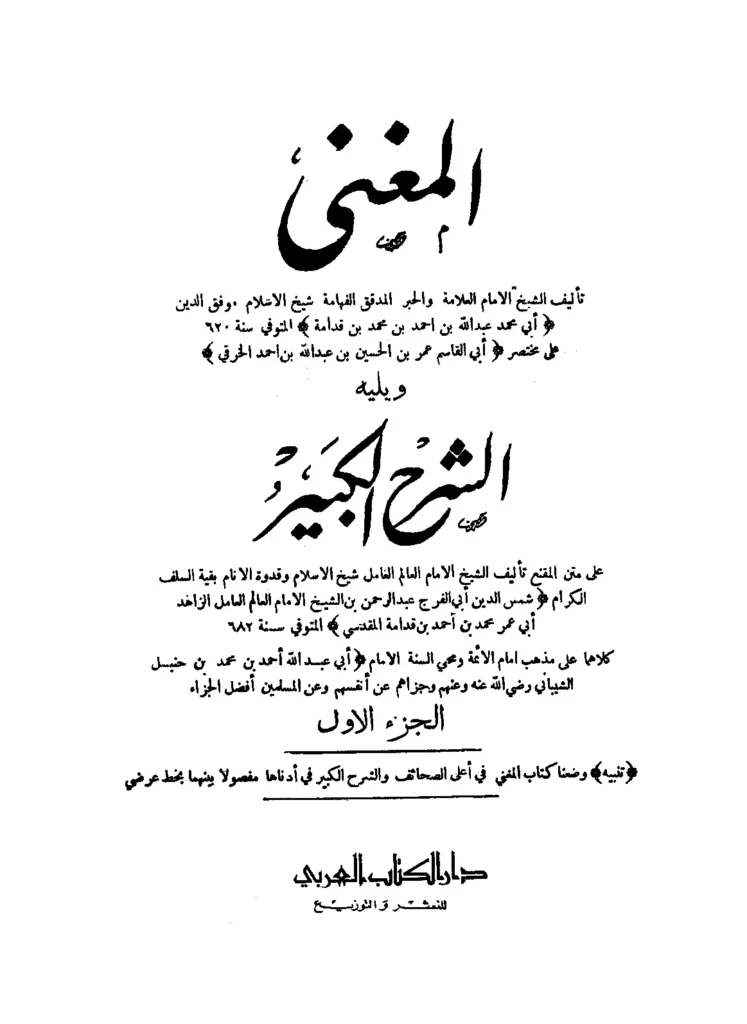 المغني
تأليف الشيخ الامام العلامة والحبر المدقق الفهامة شيخ الاسلام موفق الدين
﴿ أبي محمد عبدالله بن احمد بن محمد بن قدامة ﴾ المتوفي سنة ٦٢٠
على مختصر ﴿ أبي القاسم عمر بن الحسين بن عبدالله بن احمد الخرقي ﴾
ويليه
الشرح الكبير
على متن المقنع تأليف الشيخ الامام العالم العامل شيخ الاسلام وقدوة الانام بقية السلف
الكرام ﴿ شمس الدين أبي الفرج عبدالرحمن بن الشيخ الامام العالم العامل الزاهد
أبي عمر محمد بن أحمد بن قدامة المقدسي ﴾ المتوفي سنة ٦٨٢
كلاهما على مذهب امام الأئمة ومحي السنة الامام ﴿ أبي عبد الله أحمد بن محمد بن حنبل
الشيباني رضي الله عنه وعنهم وجزاهم عن أنفسهم وعن المسلمين أفضل الجزاء
الجزء الاول
﴿ تنبيه ﴾ وضعنا كتاب المغني في أعلى الصحائف والشرح الكبير في أدناها مفصولا بينهما بخط عرضي
دار الكتاب العربي
للنشر والتوزيع